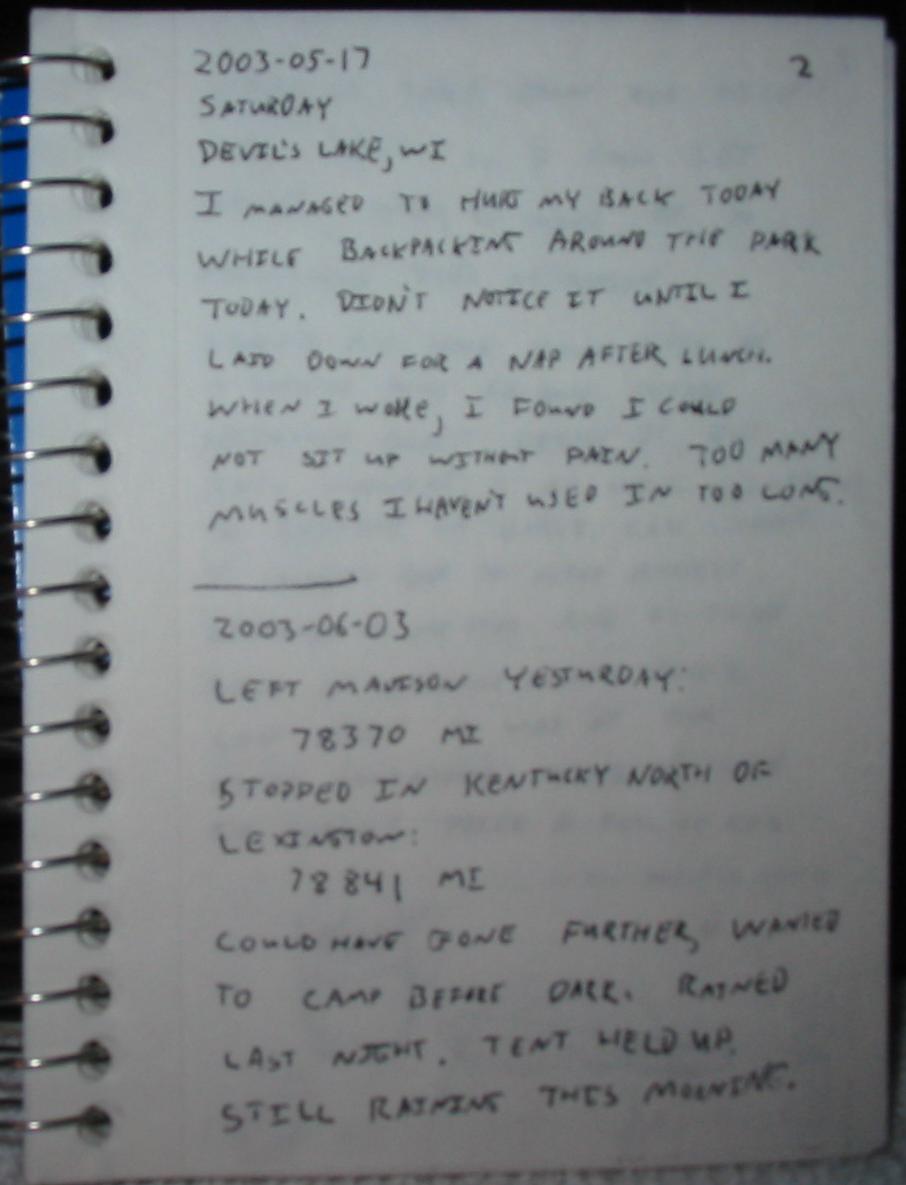 2003-05-17
2
SATURDAY
DEVIL'S LAKE, WI
I MANAGED TO HURT MY BACK TODAY
WHILE BACKPACKING AROUND THE PARK
TODAY. DIDN'T NOTICE IT UNTIL I
LAID DOWN FOR A NAP AFTER LUNCH.
WHEN I WOKE, I FOUND I COULD
NOT SIT UP WITHOUT PAIN. TOO MANY
MUSCLES I HAVEN'T USED IN TOO LONG.
2003-06-03
LEFT MADISON YESTURDAY:
78370 MI
STOPPED IN KENTUCKY NORTH OF
LEXINGTON:
78841 MI
COULD HAVE GONE FURTHER, WANTED
TO CAMP BEFORE DARK. RAINED
LAST NIGHT. TENT HELD UP.
STILL RAINING THIS MORNING.